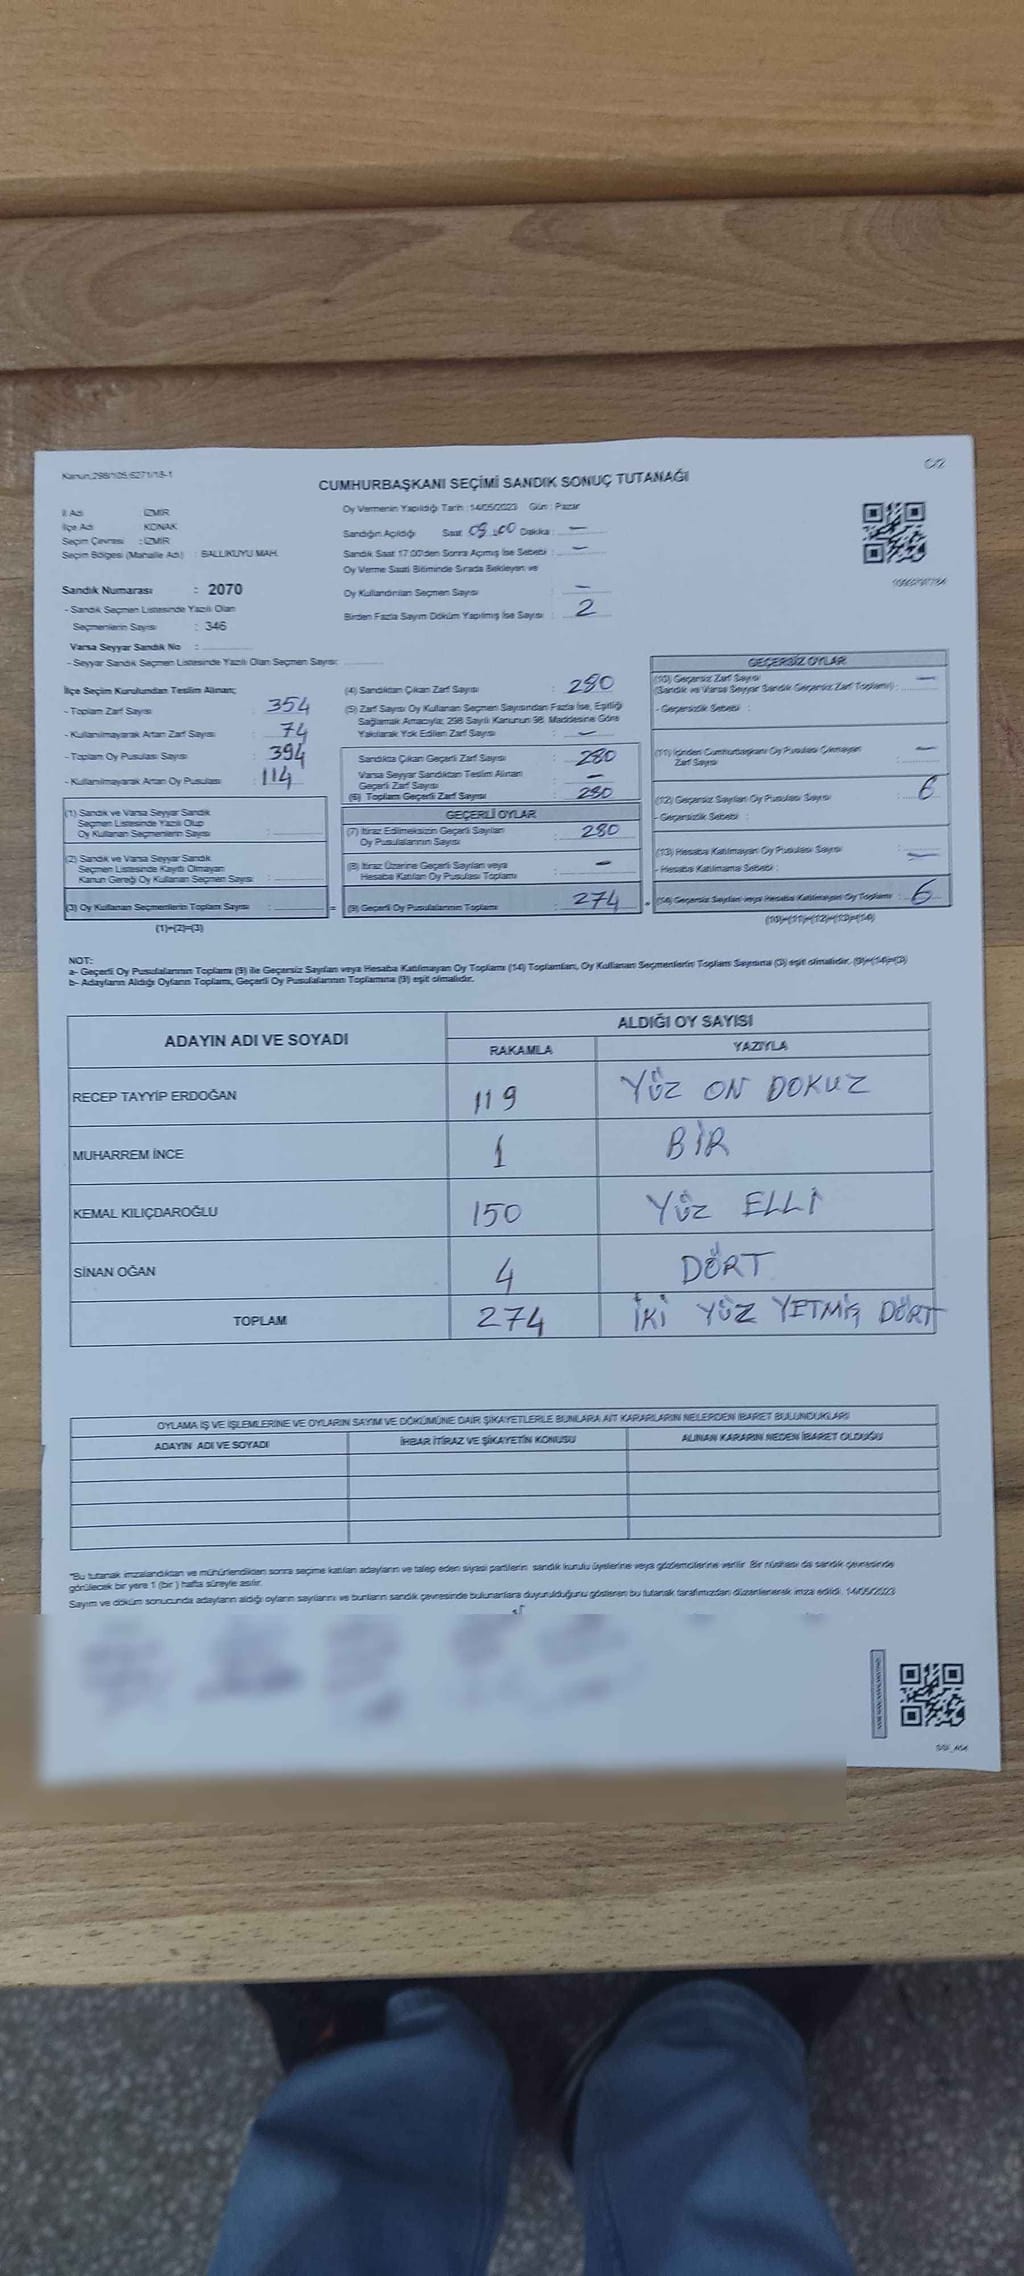 Kanun;298/105;6271/18-1
C/2
CUMHURBAŞKANI SEÇİMİ SANDIK SONUÇ TUTANAĞI
İl Adı İZMİR
İlçe Adı KONAK
Seçim Çevresi : İZMİR
Seçim Bölgesi (Mahalle Adı) : BALLIKUYU MAH.
Sandık Numarası : 2070
- Sandık Seçmen Listesinde Yazılı Olan
Seçmenlerin Sayısı : 346
Varsa Seyyar Sandık No :
- Seyyar Sandık Seçmen Listesinde Yazılı Olan Seçmen Sayısı:
Oy Vermenin Yapıldığı Tarih : 14/05/2023 Gün : Pazar
Sandığın Açıldığı Saat 08.00 Dakika : —
Sandık Saat 17.00'den Sonra Açımış İse Sebebi : —
Oy Verme Saati Bitiminde Sırada Bekleyen ve
Oy Kullandırılan Seçmen Sayısı : —
Birden Fazla Sayım Döküm Yapılmış İse Sayısı : 2
İlçe Seçim Kurulundan Teslim Alınan;
- Toplam Zarf Sayısı : 354
- Kullanılmayarak Artan Zarf Sayısı : 74
- Toplam Oy Pusulası Sayısı : 394
- Kullanılmayarak Artan Oy Pusulası : 114
(1) Sandık ve Varsa Seyyar Sandık
Seçmen Listesinde Yazılı Olup
Oy Kullanan Seçmenlerin Sayısı :
(2) Sandık ve Varsa Seyyar Sandık
Seçmen Listesinde Kayıtlı Olmayan
Kanun Gereği Oy Kullanan Seçmen Sayısı :
(3) Oy Kullanan Seçmenlerin Toplam Sayısı : =
(1)+(2)=(3)
(4) Sandıktan Çıkan Zarf Sayısı : 280
(5) Zarf Sayısı Oy Kullanan Seçmen Sayısından Fazla İse, Eşitliği
Sağlamak Amacıyla; 298 Sayılı Kanunun 98. Maddesine Göre
Yakılarak Yok Edilen Zarf Sayısı : —
Sandıkta Çıkan Geçerli Zarf Sayısı : 280
Varsa Seyyar Sandıktan Teslim Alınan
Geçerli Zarf Sayısı : —
(6) Toplam Geçerli Zarf Sayısı : 280
GEÇERLİ OYLAR
(7) İtiraz Edilmeksizin Geçerli Sayılan
Oy Pusulalarının Sayısı : 280
(8) İtiraz Üzerine Geçerli Sayılan veya
Hesaba Katılan Oy Pusulası Toplamı : —
(9) Geçerli Oy Pusulalarının Toplamı : 274
GEÇERSİZ OYLAR
(10) Geçersiz Zarf Sayısı —
(Sandık ve Varsa Seyyar Sandık Geçersiz Zarf Toplamı) :
- Geçersizlik Sebebi :
(11) İçinden Cumhurbaşkanı Oy Pusulası Çıkmayan —
Zarf Sayısı :
(12) Geçersiz Sayılan Oy Pusulası Sayısı : 6
- Geçersizlik Sebebi :
(13) Hesaba Katılmayan Oy Pusulası Sayısı : —
- Hesaba Katılmama Sebebi :
(14) Geçersiz Sayılan veya Hesaba Katılmayan Oy Toplamı : 6
(10)+(11)+(12)+(13)=(14)
NOT:
a- Geçerli Oy Pusulalarının Toplamı (9) ile Geçersiz Sayılan veya Hesaba Katılmayan Oy Toplamı (14) Toplamları, Oy Kullanan Seçmenlerin Toplam Sayısına (3) eşit olmalıdır. (9)+(14)=(3)
b- Adayların Aldığı Oyların Toplamı, Geçerli Oy Pusulalarının Toplamına (9) eşit olmalıdır.
ADAYIN ADI VE SOYADI
ALDIĞI OY SAYISI
RAKAMLA YAZIYLA
RECEP TAYYİP ERDOĞAN 119 YÜZ ON DOKUZ
MUHARREM İNCE 1 BİR
KEMAL KILIÇDAROĞLU 150 YÜZ ELLİ
SİNAN OĞAN 4 DÖRT
TOPLAM 274 İKİ YÜZ YETMİŞ DÖRT
OYLAMA İŞ VE İŞLEMLERİNE VE OYLARIN SAYIM VE DÖKÜMÜNE DAİR ŞİKAYETLERLE BUNLARA AİT KARARLARIN NELERDEN İBARET BULUNDUKLARI
ADAYIN ADI VE SOYADI İHBAR İTİRAZ VE ŞİKAYETİN KONUSU ALINAN KARARIN NEDEN İBARET OLDUĞU
"Bu tutanak imzalandıktan ve mühürlendikten sonra seçime katılan adayların ve talep eden siyasi partilerin sandık kurulu üyelerine veya gözlemcilerine verilir. Bir nüshası da sandık çevresinde
görülecek bir yere 1 (bir ) hafta süreyle asılır.
Sayım ve döküm sonucunda adayların aldığı oyların sayılarını ve bunların sandık çevresinde bulunanlara duyurulduğunu gösteren bu tutanak tarafımızdan düzenlenerek imza edildi. 14/05/2023